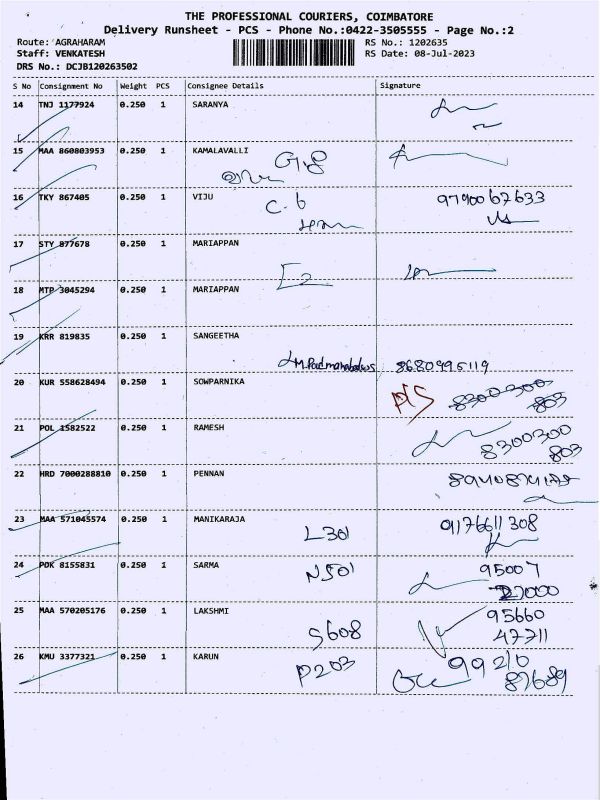 THE PROFESSIONAL COURIERS, COIMBATORE
Delivery Runsheet - PCS - Phone No.:0422-3505555 - Page No.:2
Route: AGRAHARAM RS No.: 1202635
Staff: VENKATESH RS Date: 08-Jul-2023
DRS No.: DCJB120263502
S No Consignment No Weight PCS Consignee Details Signature
14 TNJ 1177924 0.250 1 SARANYA
15 MAA 860803953 0.250 1 KAMALAVALLI
16 TKY 867405 0.250 1 VIJU 9790067633
C.b
17 STY 877678 0.250 1 MARIAPPAN
18 MTP 3045294 0.250 1 MARIAPPAN
19 KRR 819835 0.250 1 SANGEETHA
8680995119
20 KUR 558628494 0.250 1 SOWPARNIKA
8300300
803
21 POL 1582522 0.250 1 RAMESH
8300300
803
22 HRD 7000288810 0.250 1 PENNAN
23 MAA 571045574 0.250 1 MANIKARAJA 9176611308
L301
24 PDK 8155831 0.250 1 SARMA 95007
N501
25 MAA 570205176 0.250 1 LAKSHMI 95660
S608 47711
26 KMU 3377321 0.250 1 KARUN 99210
P203 87689